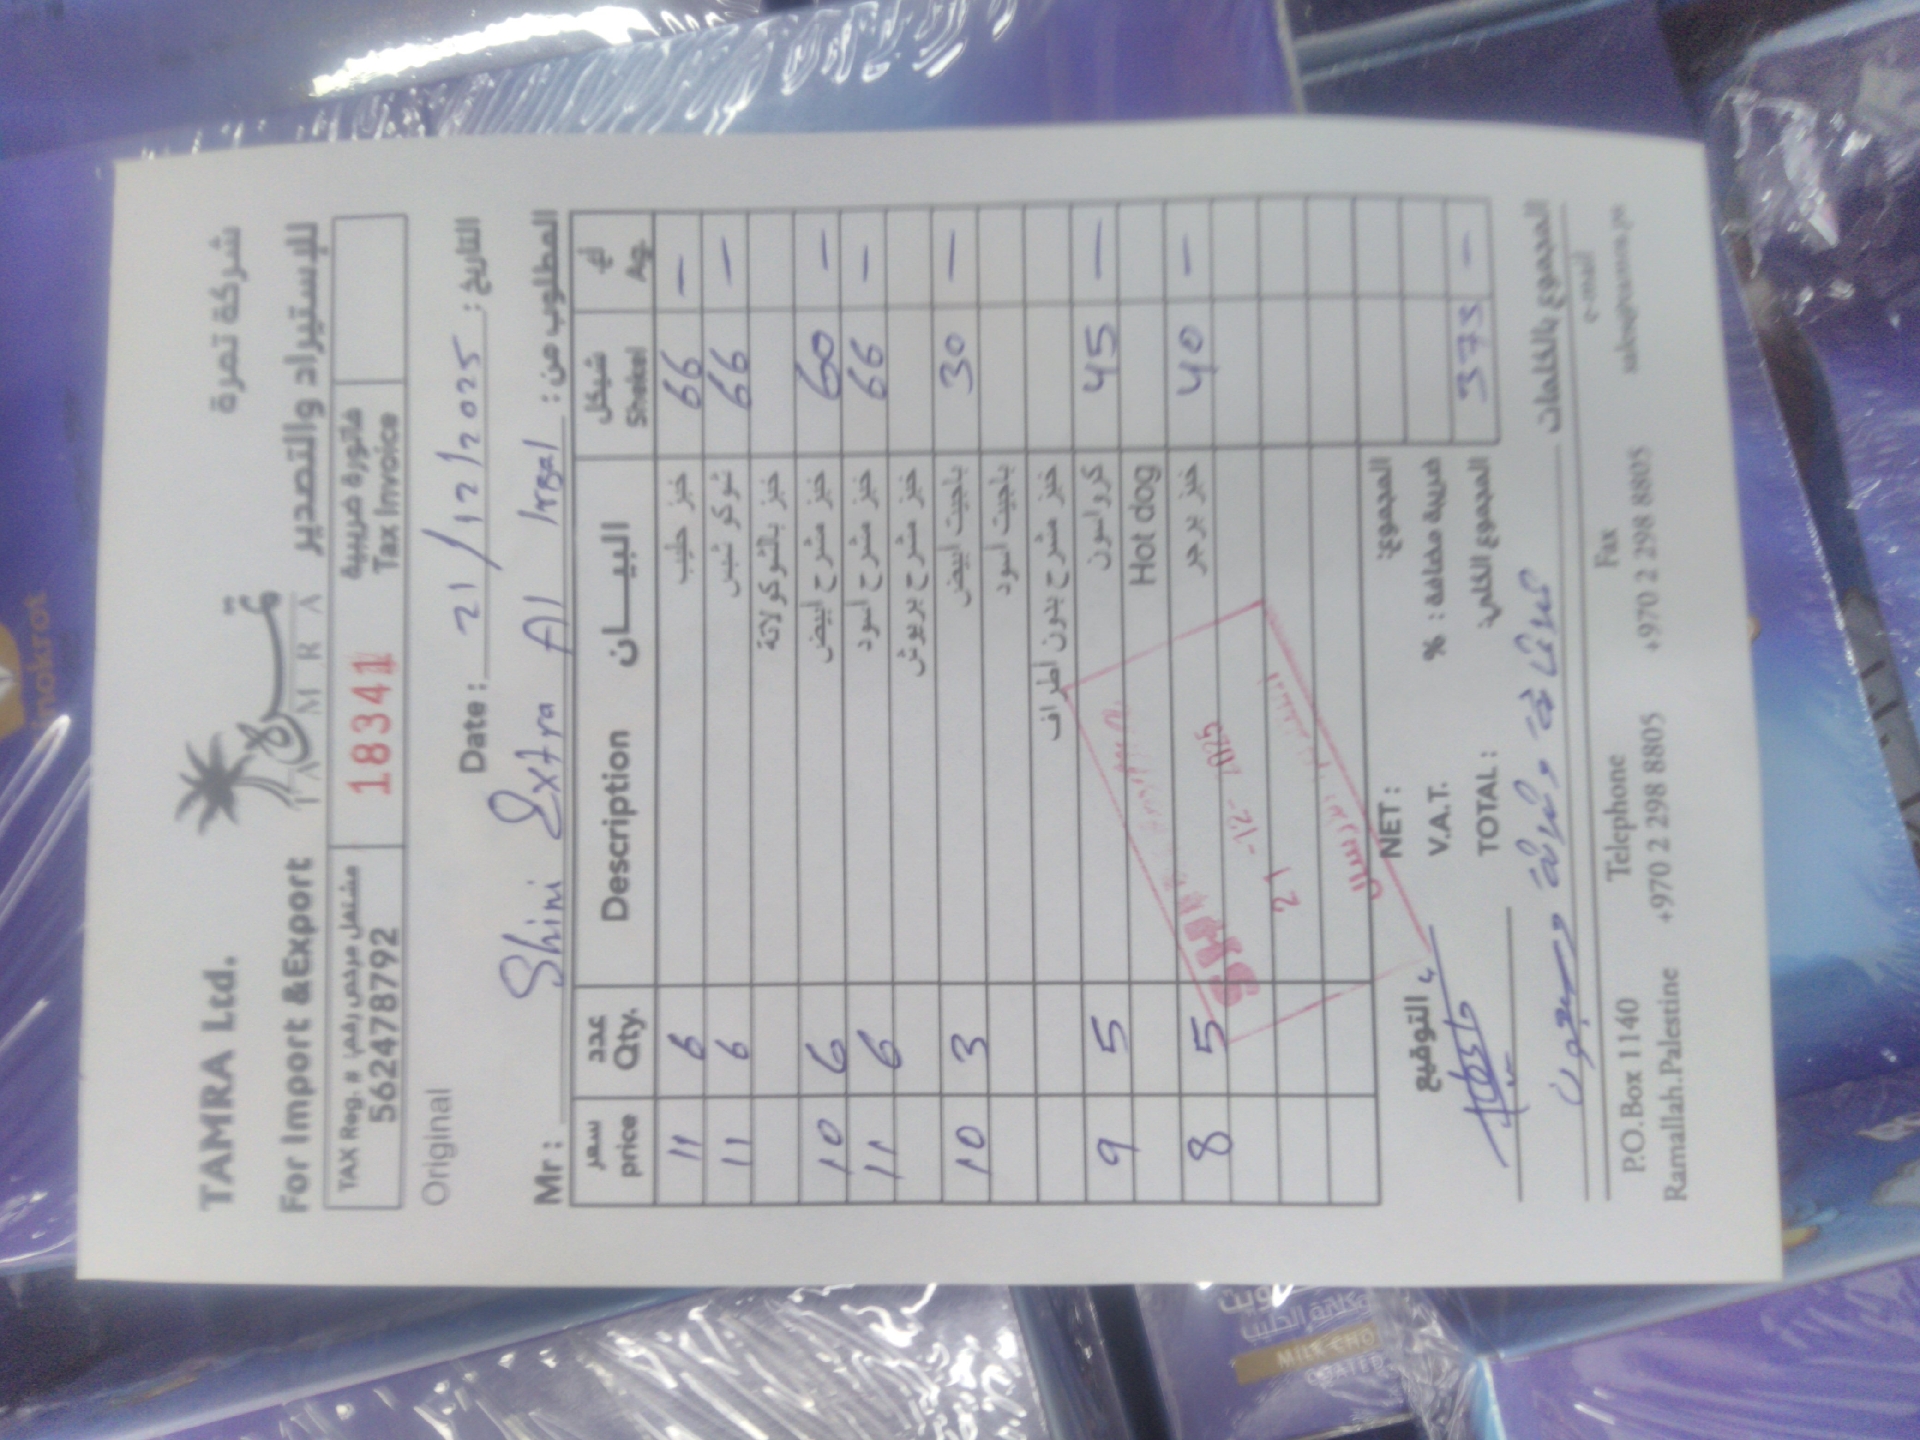 TAMRA Ltd.
شركة تمرة
For Import & Export
تمرة
TAMRA
للإستيراد والتصدير
TAX Reg. # مشتغل مرخص رقم
562478792
18341
فاتورة ضريبية
Tax Invoice
Original
Date : 21/12/2025 التاريخ :
Mr : Shini Extra Al Irsal المطلوب من :
سعر price عدد Qty. Description البيـــان شيكل Shekel Ag.
11 6 خبز حليب 66 —
11 6 شوكو شيبس 66 —
خبز بالشوكولاتة
10 6 خبز مشرح ابيض 60 —
11 6 خبز مشرح اسود 66 —
خبز مشرح بريوش
10 3 باجيت ابيض 30 —
باجيت اسود
خبز مشرح بدون اطراف
9 5 كرواسون 45 —
Hot dog
8 5 خبز برجر 40 —
21 -12- 2025
NET : المجموع:
التوقيع V.A.T. % : ضريبة مضافة
TOTAL : المجموع الكلي: 373 —
ثلاثمائة وثلاثة وسبعون المجموع بالكلمات
P.O.Box 1140 Telephone Fax e-mail
Ramallah.Palestine +970 2 298 8805 +970 2 298 8805
nokrot
MILK CHO
COATED